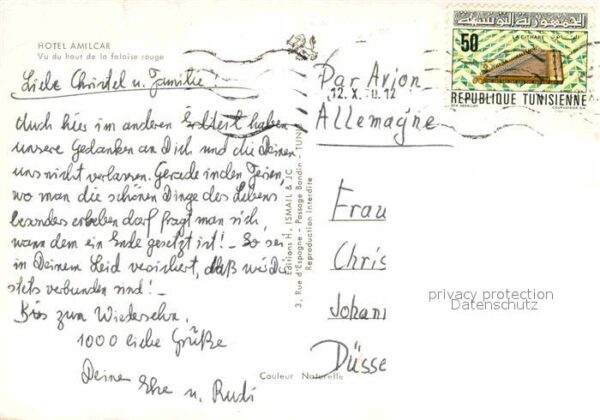 HOTEL AMILCAR
Vu du haut de la falaise rouge
Liebe Christel u. Familie!
Auch hier im anderen Erdteil haben
unsere Gedanken an Dich und die Deinen
uns nicht verlassen. Gerade in den Ferien,
wo man die schönen Dinge des Lebens
besonders erleben darf fragt man sich,
wann dem ein Ende gesetzt ist! – So sei
in Deinem Leid versichert, daß wir Dir
stets verbunden sind! –
Bis zum Wiedersehn.
1000 liebe Grüße
Deine u. Rudi
Editions H. ISMAIL & JC
3, Rue d'Espagne - Passage Bondin - TUN
Reproduction interdite
Couleur Naturelle
50
REPUBLIQUE TUNISIENNE
الجمهورية التونسية
Par Avion
12. X.
Allemagne
Frau
Chris
Johann
Düsse
privacy protection
Datenschutz